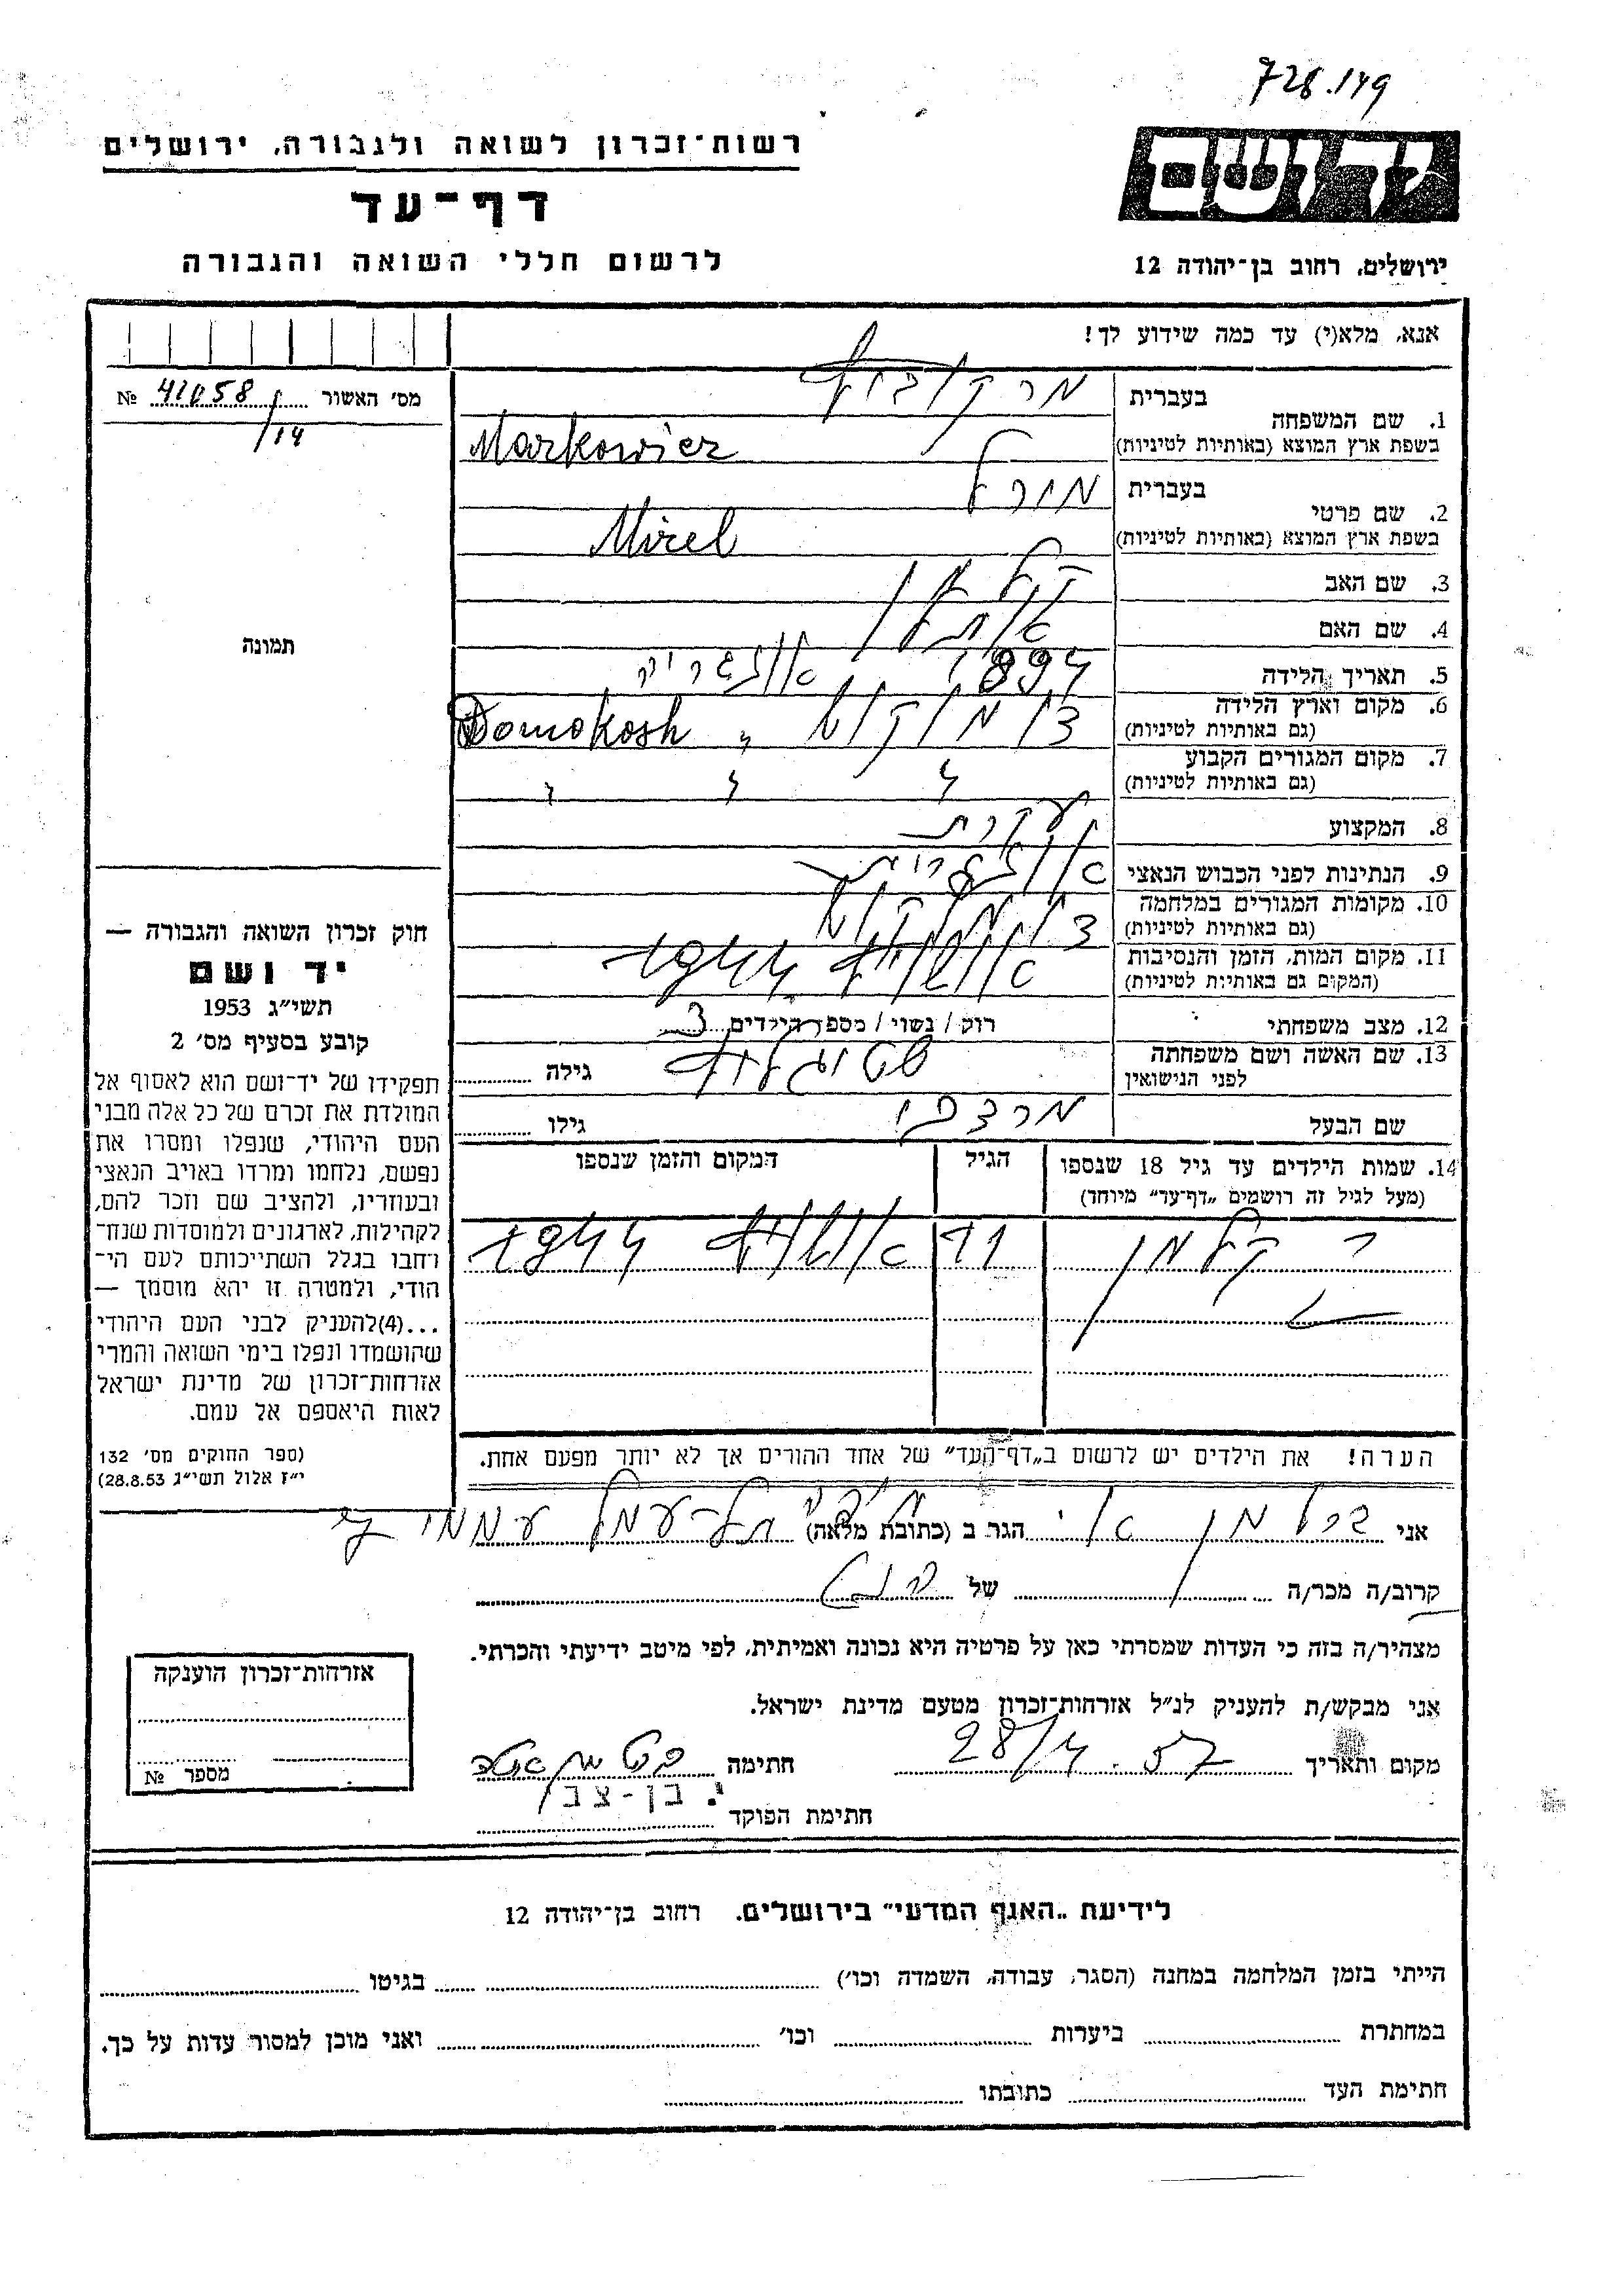 728.149
רשות־זכרון לשואה ולגבורה, ירושלים
יד ושם
דף־עד
לרשום חללי השואה והגבורה
ירושלים, רחוב בן־יהודה 12
אנא, מלא(י) עד כמה שידוע לך!
מס׳ האשור № 41058/14
1. שם המשפחה
בעברית מרקוביץ
בשפת ארץ המוצא (באותיות לטיניות) Markowicz
2. שם פרטי
בעברית מירל
בשפת ארץ המוצא (באותיות לטיניות) Mirel
3. שם האב קלמן
4. שם האם
תמונה
5. תאריך הלידה 1894
6. מקום וארץ הלידה
(גם באותיות לטיניות) דומוקוש „ Domokosh
7. מקום המגורים הקבוע
(גם באותיות לטיניות) " " "
8. המקצוע עקרת
9. הנתינות לפני הכבוש הנאצי
10. מקומות המגורים במלחמה
(גם באותיות לטיניות) דומוקוש
11. מקום המות, הזמן והנסיבות
(המקום גם באותיות לטיניות) אושויץ 1944
12. מצב משפחתי רוק / נשוי / מספר הילדים 3
13. שם האשה ושם משפחתה
לפני הנישואין גילה
שם הבעל מרדכי גילו
14. שמות הילדים עד גיל 18 שנספו
(מעל לגיל זה רושמים „דף־עד״ מיוחד)
הגיל
המקום והזמן שנספו
קלמן 11 אושויץ 1944
הערה! את הילדים יש לרשום ב„דף־העד״ של אחד ההורים אך לא יותר מפעם אחת.
חוק זכרון השואה והגבורה —
יד ושם
תשי״ג 1953
קובע בסעיף מס׳ 2
תפקידו של יד־ושם הוא לאסוף אל
המולדת את זכרם של כל אלה מבני
העם היהודי, שנפלו ומסרו את
נפשם, נלחמו ומרדו באויב הנאצי
ובעוזריו, ולהציב שם וזכר להם,
לקהילות, לארגונים ולמוסדות שנח־
רחבו בגלל השתייכותם לעם הי־
הודי, ולמטרה זו יהא מוסמך —
...(4)להעניק לבני העם היהודי
שהושמדו ונפלו בימי השואה והמרי
אזרחות־זכרון של מדינת ישראל
לאות היאספם אל עמם.
(ספר החוקים מס׳ 132
י״ז אלול תשי״ג 28.8.53)
אני הגר ב (כתובת מלאה) תל-עמל
קרוב/ה מכר/ה של
מצהיר/ה בזה כי העדות שמסרתי כאן על פרטיה היא נכונה ואמיתית, לפי מיטב ידיעתי והכרתי.
אני מבקש/ת להעניק לנ״ל אזרחות־זכרון מטעם מדינת ישראל.
מקום ותאריך 28/4.57 חתימה
י. בן-צבי
חתימת הפוקד
אזרחות־זכרון הוענקה
מספר №
לידיעת „האגף המדעי״ בירושלים. רחוב בן־יהודה 12
הייתי בזמן המלחמה במחנה (הסגר, עבודה, השמדה וכו׳) בגיטו
במחתרת ביערות וכו׳ ואני מוכן למסור עדות על כך.
חתימת העד כתובתו